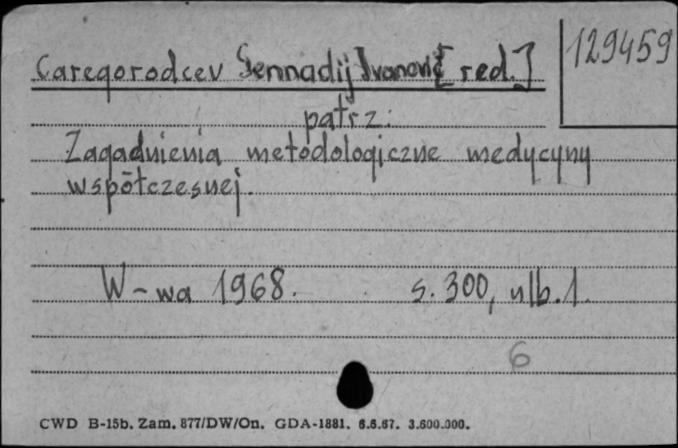 129459
Caregorodcev Gennadij Ivanovič [red.]
patrz:
Zagadnienia metodologiczne medycyny
współczesnej.
W-wa 1968. s. 300, nlb. 1.
6
CWD B-15b. Zam. 877/DW/On. GDA-1881. 6.6.67. 3.600.000.